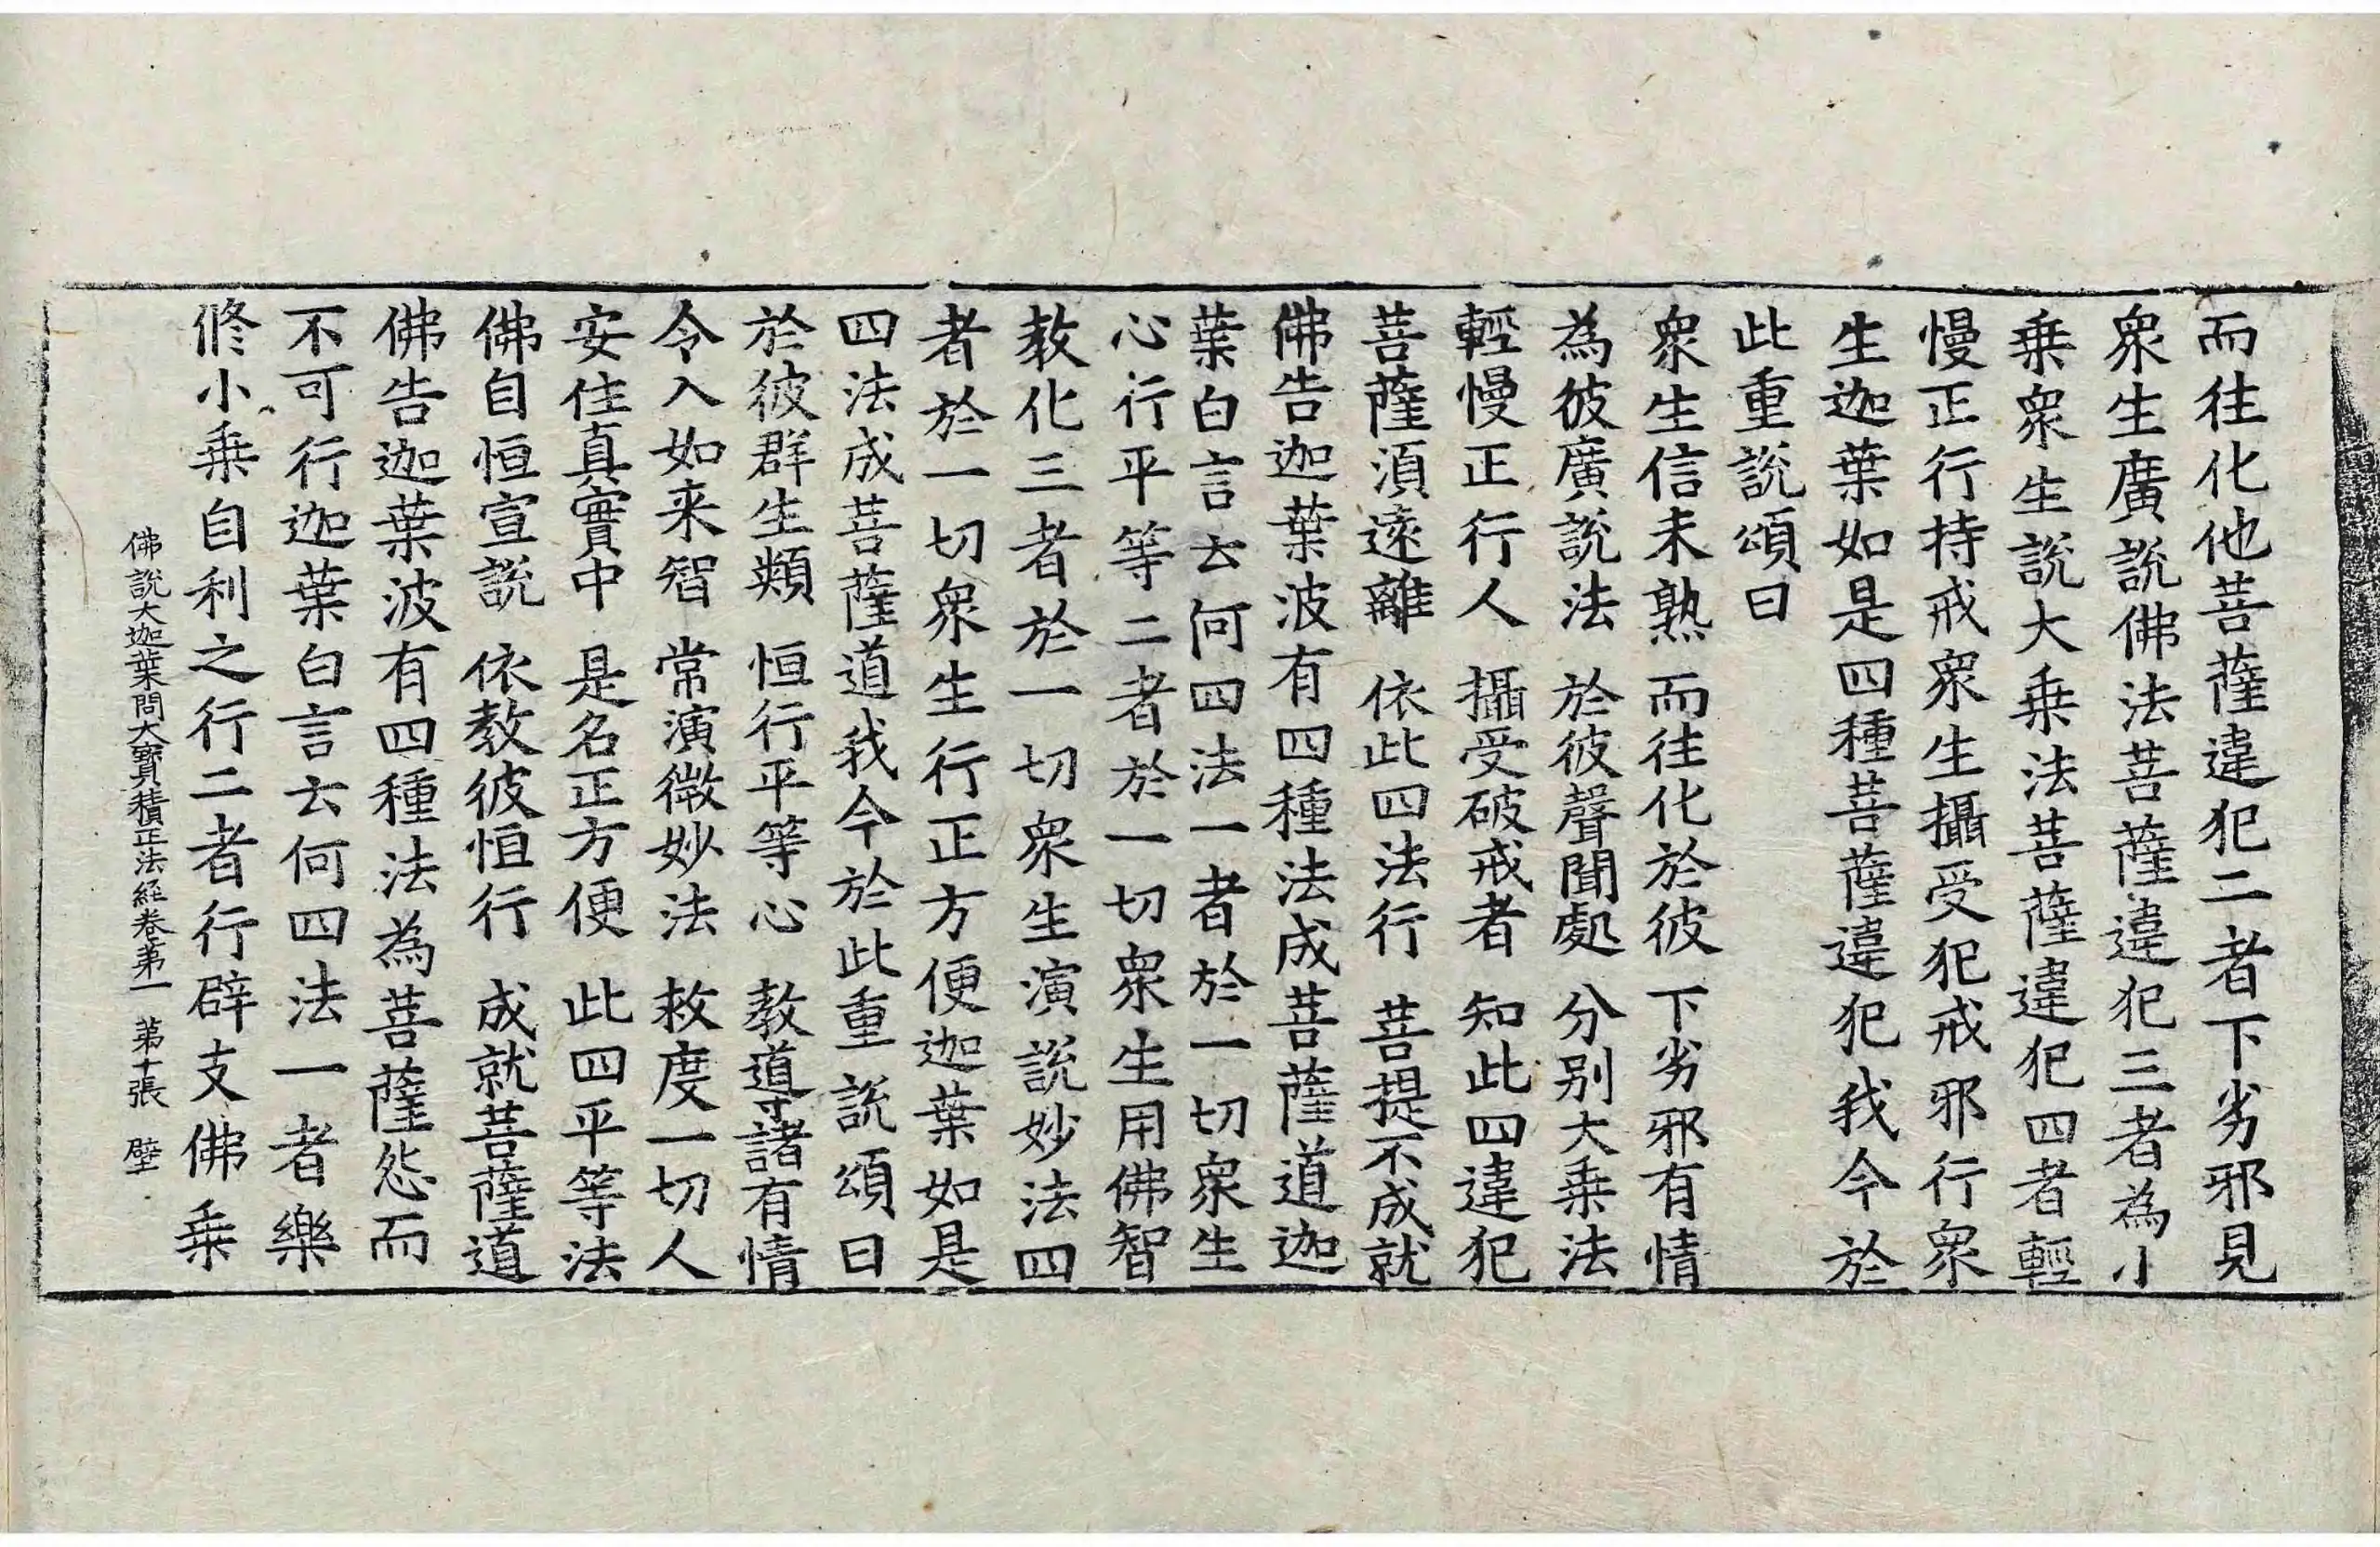 而往化他菩薩違犯二者下劣邪見
衆生廣說佛法菩薩違犯三者為小
乗衆生說大乗法菩薩違犯四者輕
慢正行持戒衆生攝受犯戒邪行衆
生迦葉如是四種菩薩違犯我今於
此重說頌曰
衆生信未熟 而往化於彼 下劣邪有情
為彼廣說法 於彼聲聞處 分別大乗法
輕慢正行人 攝受破戒者 知此四違犯
菩薩湏遠離 依此四法行 菩提不成就
佛告迦葉波有四種法成菩薩道迦
葉白言云何四法一者於一切衆生
心行平等二者於一切衆生用佛智
教化三者於一切衆生演說妙法四
者於一切衆生行正方便迦葉如是
四法成菩薩道我今於此重說頌曰
於彼群生類 恒行平等心 教導諸有情
令入如来智 常演微妙法 救度一切人
安住真實中 是名正方便 此四平等法
佛自恒宣說 依教彼恒行 成就菩薩道
佛告迦葉波有四種法為菩薩怨而
不可行迦葉白言云何四法一者樂
修小乗自利之行二者行辟支佛乗
佛說大迦葉問大寶積正法經卷第一 第十張 璧